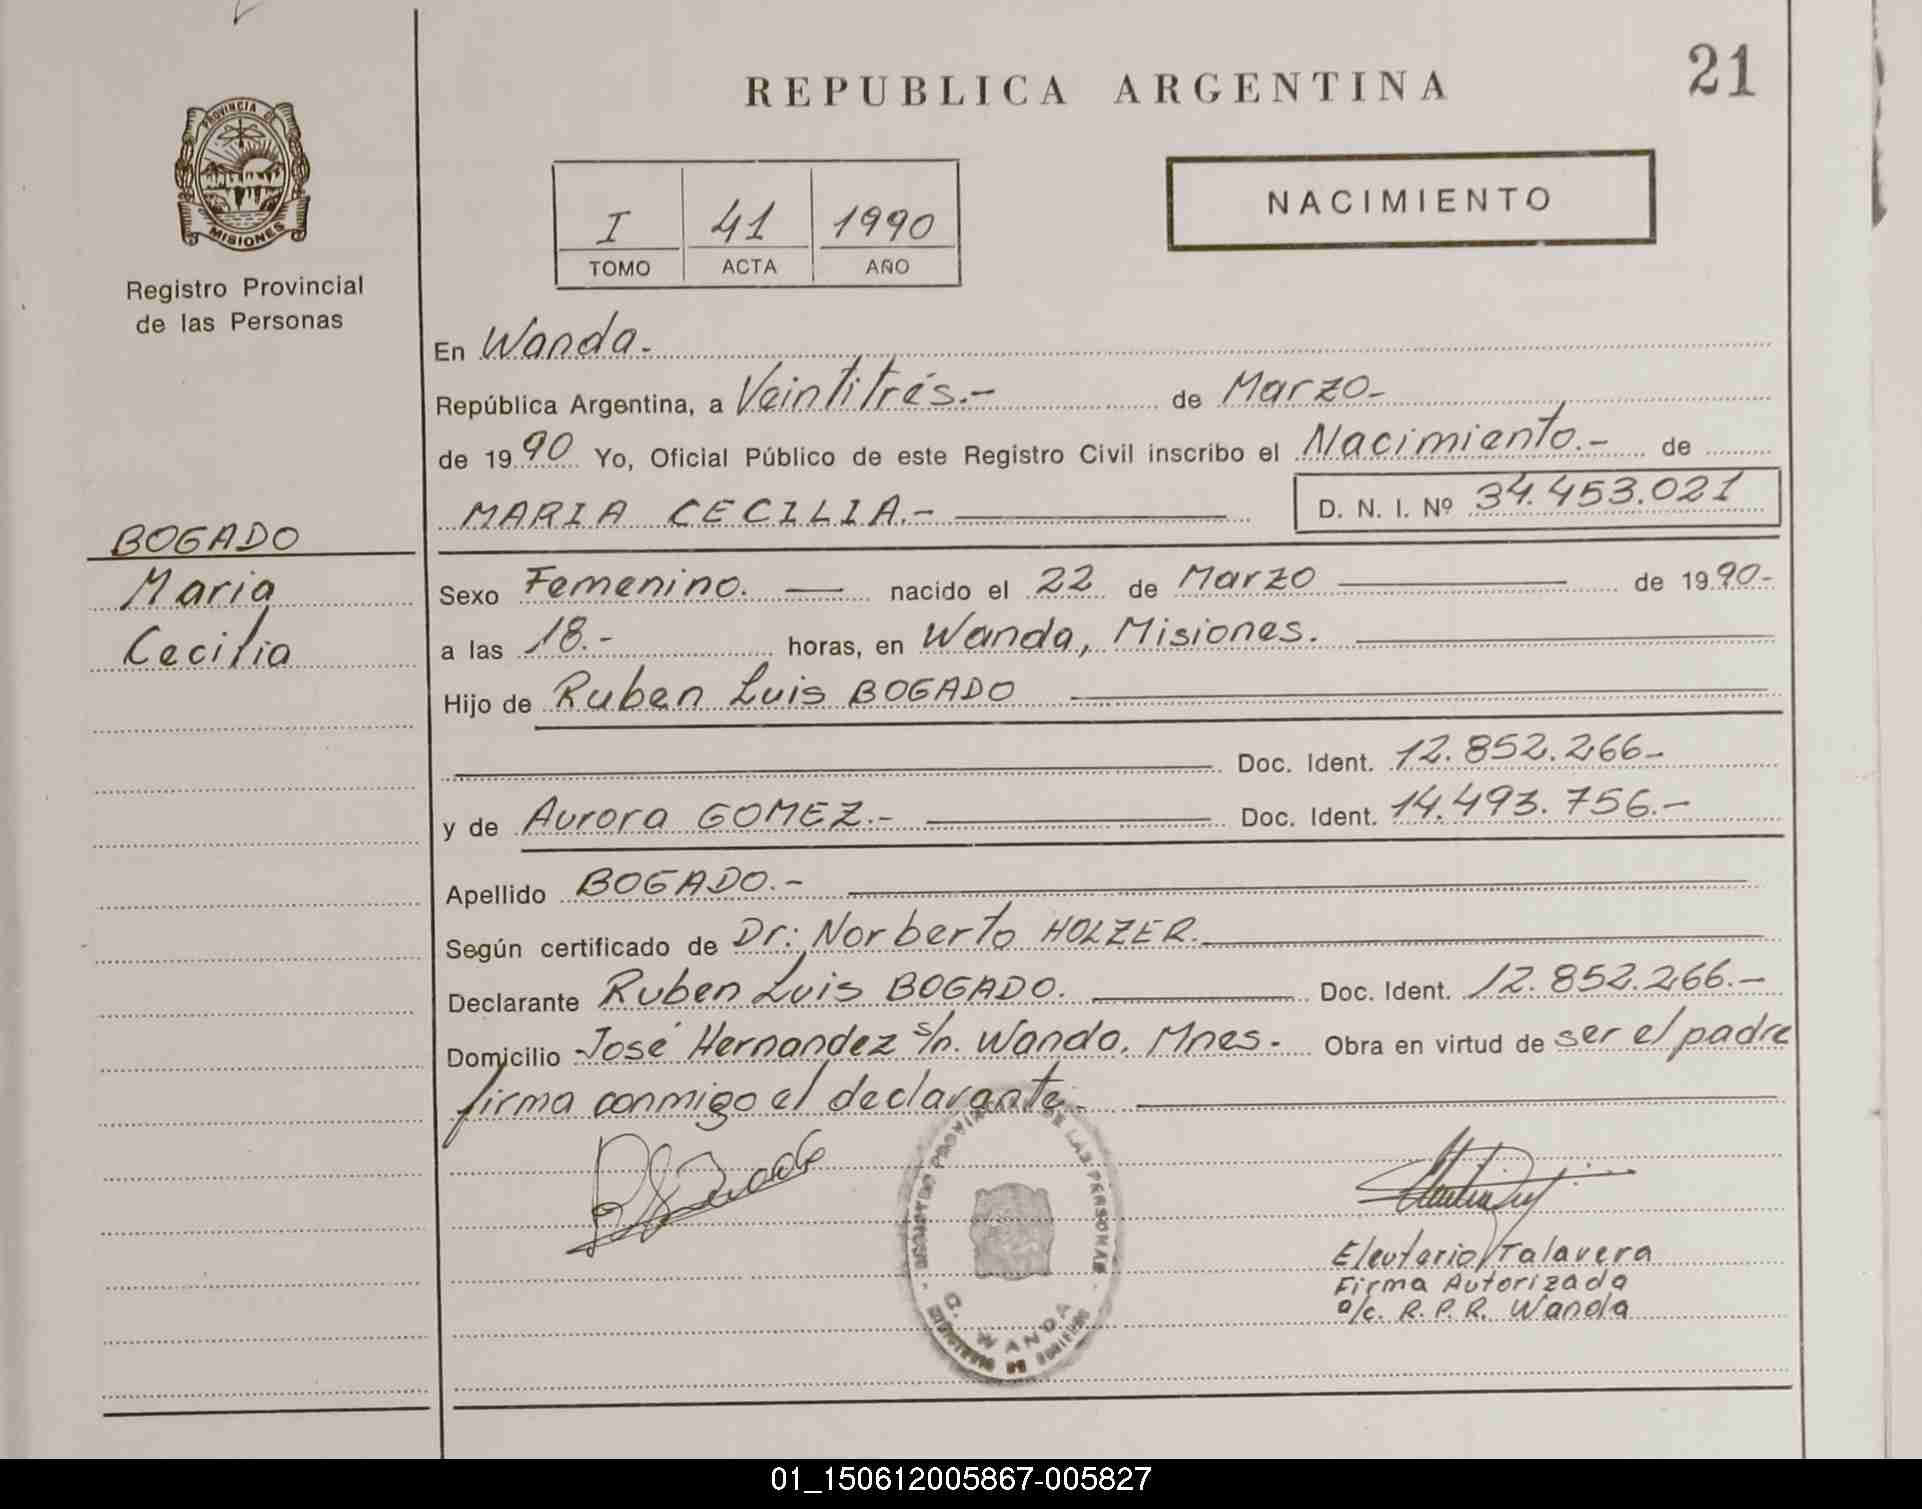 21
REPUBLICA ARGENTINA
PROVINCIA DE
MISIONES
Registro Provincial
de las Personas
NACIMIENTO
I 41 1990
TOMO ACTA AÑO
En Wanda.
República Argentina, a Veintitrés.- de Marzo-
de 1990 Yo, Oficial Público de este Registro Civil inscribo el Nacimiento.- de
MARIA CECILIA.- D. N. I. Nº 34.453.021
BOGADO
Maria
Cecilia
Sexo Femenino. nacido el 22 de Marzo de 1990-
a las 18.- horas, en Wanda, Misiones.
Hijo de Ruben Luis BOGADO
Doc. Ident. 12.852.266-
y de Aurora GOMEZ.- Doc. Ident. 14.493.756.-
Apellido BOGADO.-
Según certificado de Dr: Norberto HOLZER.
Declarante Ruben Luis BOGADO. Doc. Ident. 12.852.266.-
Domicilio José Hernandez s/n. Wanda. Mnes.- Obra en virtud de ser el padre
firma conmigo el declarante.
REGISTRO PROVINCIAL DE LAS PERSONAS
D. WANDA
MINISTERIO DE GOBIERNO
Eleuterio Talavera
Firma Autorizada
a/c. R.P.R. Wanda
01_150612005867-005827